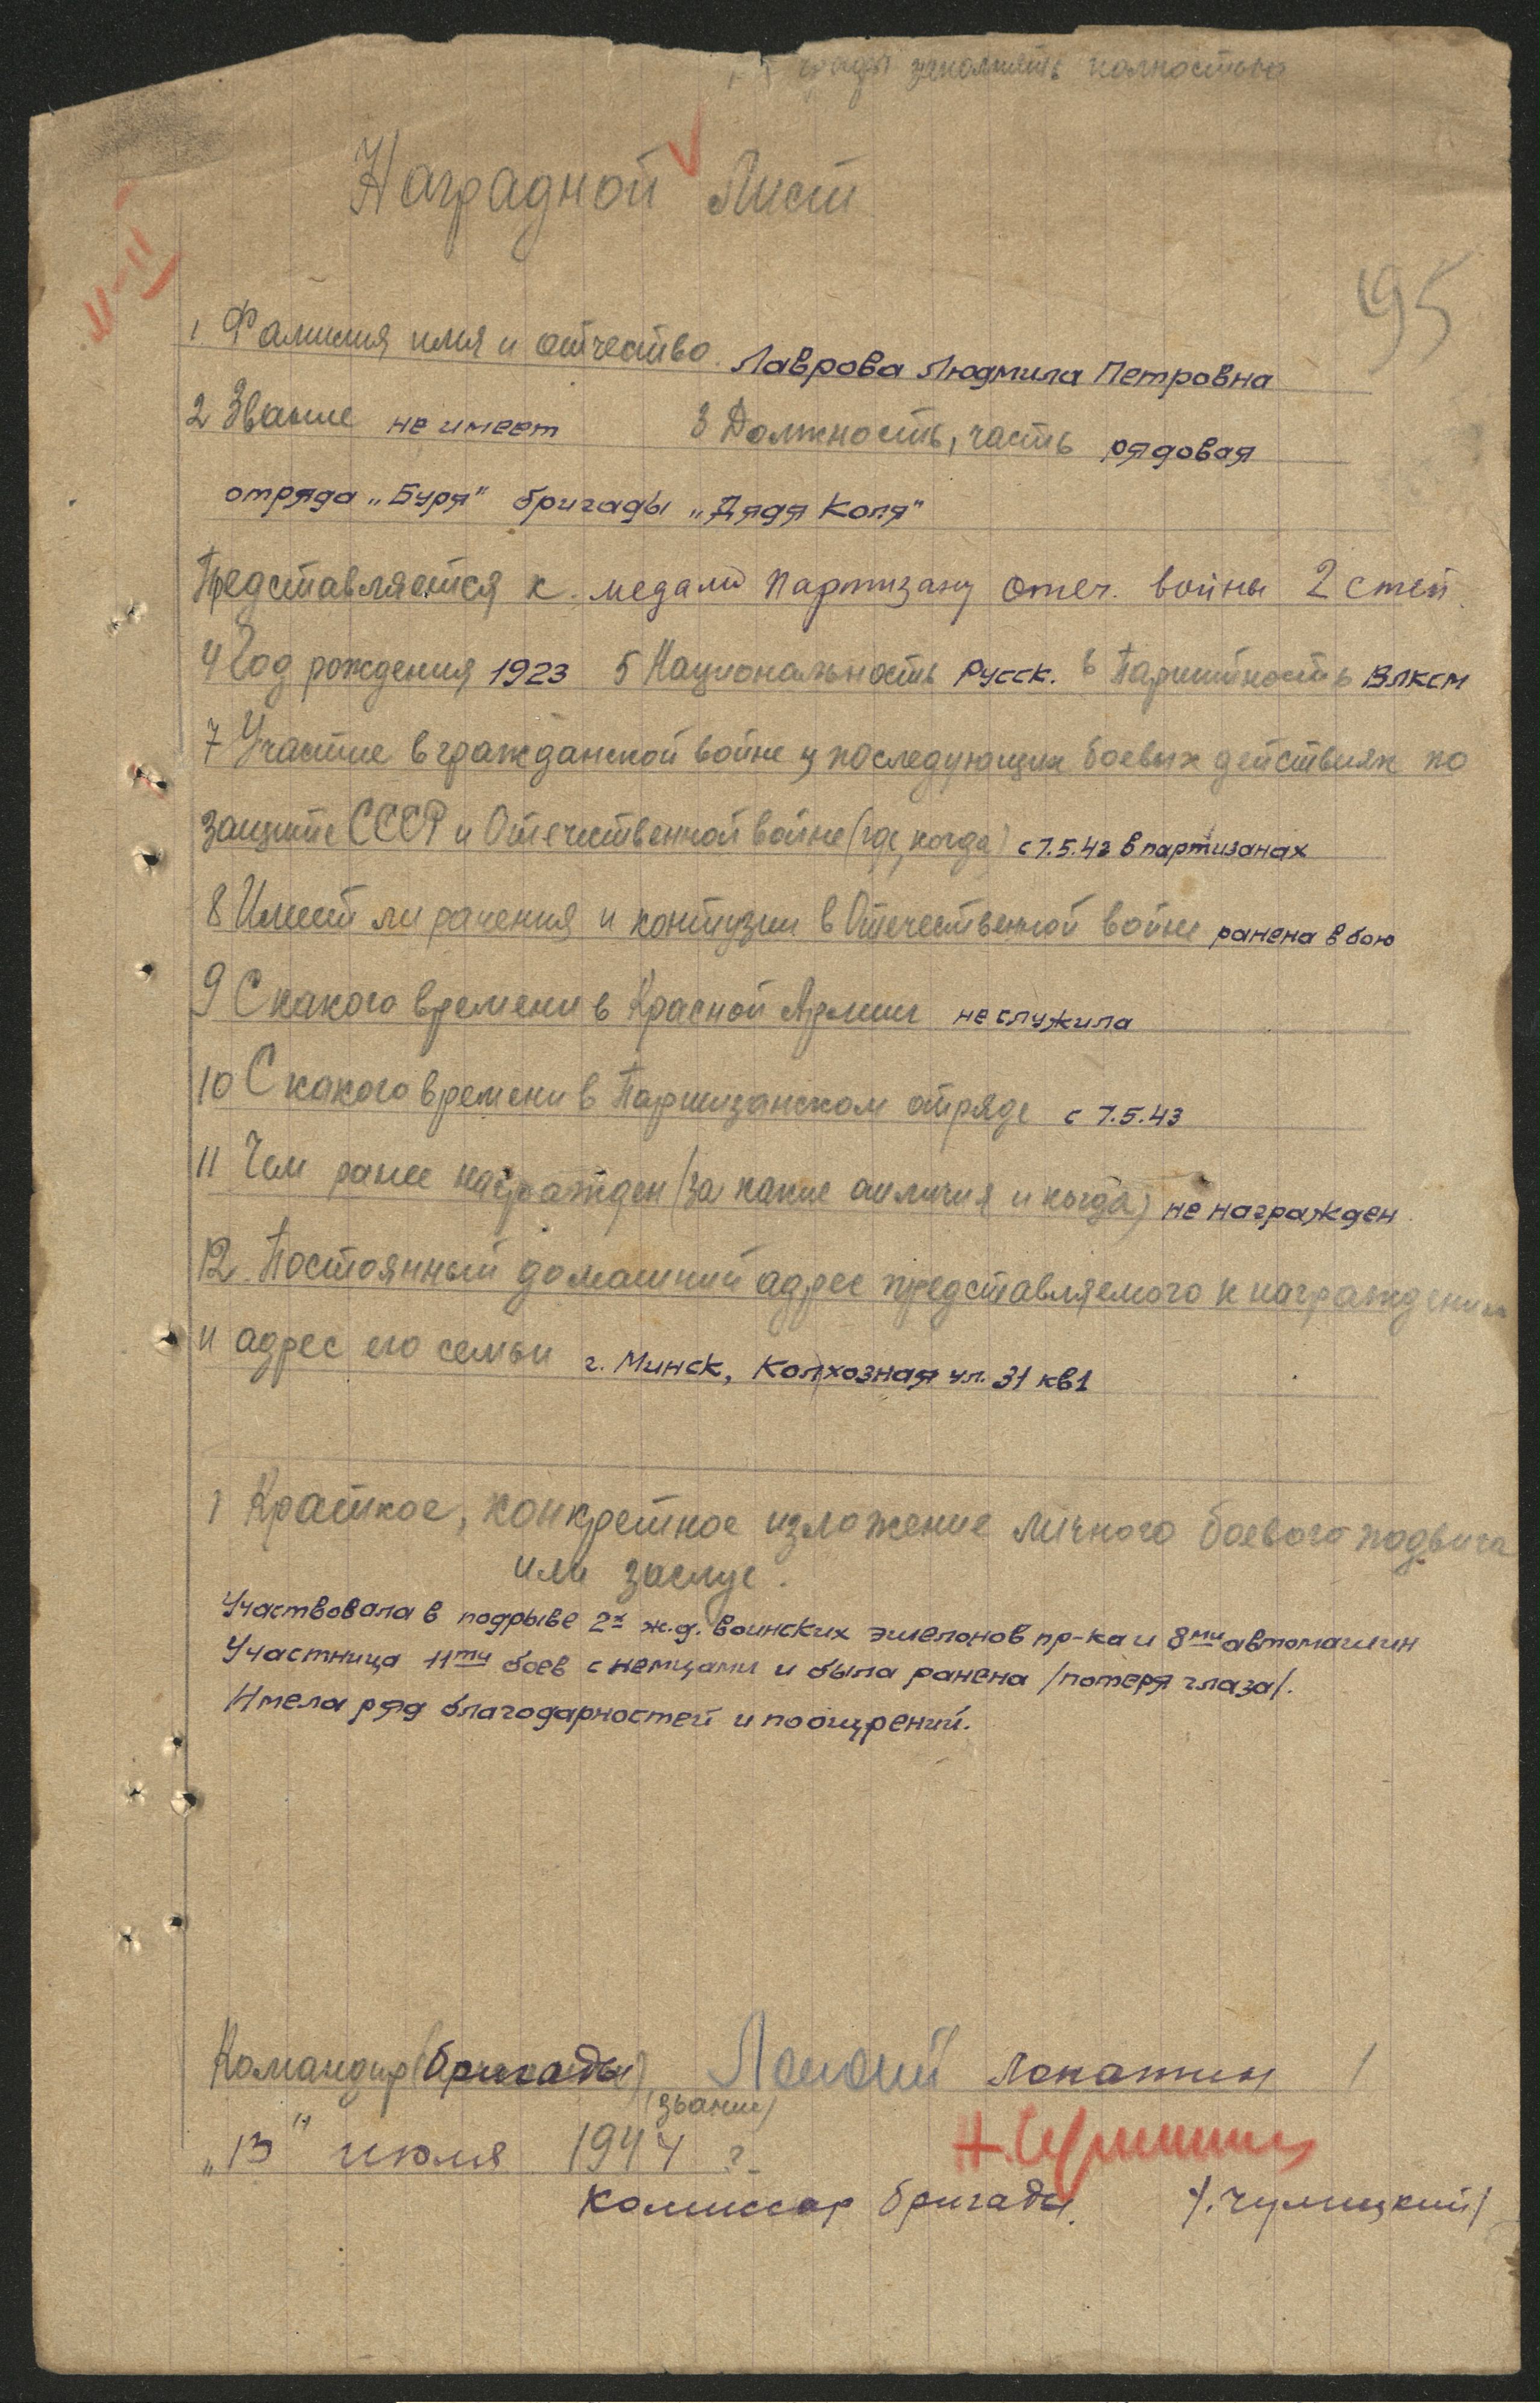 графы заполнять полностью
Наградной Лист
95
1 Фамилия имя и отчество Лаврова Людмила Петровна
2 Звание не имеет 3 Должность, часть рядовая
отряда „Буря" бригады „Дядя Коля"
Представляется к медали Партизану Отеч. войны 2 степ.
4 Год рождения 1923 5 Национальность Русск. 6 Партийность ВЛКСМ
7 Участие в гражданской войне и последующих боевых действиях по
защите СССР и Отечественной войне (где, когда) с 7.5.43 в партизанах
8 Имеет ли ранения и контузии в Отечественной войне ранена в бою
9 С какого времени в Красной Армии не служила
10 С какого времени в Партизанском отряде с 7.5.43
11 Чем ранее награжден (за какие отличия и когда) не награжден
12. Постоянный домашний адрес представляемого к награждению
и адрес его семьи г. Минск, Колхозная ул. 31 кв1
1 Краткое, конкретное изложение личного боевого подвига
или заслуг.
Участвовала в подрыве 2х ж.д. воинских эшелонов пр-ка и 8ми автомашин
Участница 11ти боев с немцами и была ранена /потеря глаза/.
Имела ряд благодарностей и поощрений.
Командир (бригады) Лопатин /
(звание)
„13" июля 1944 г.
Комиссар бригады.